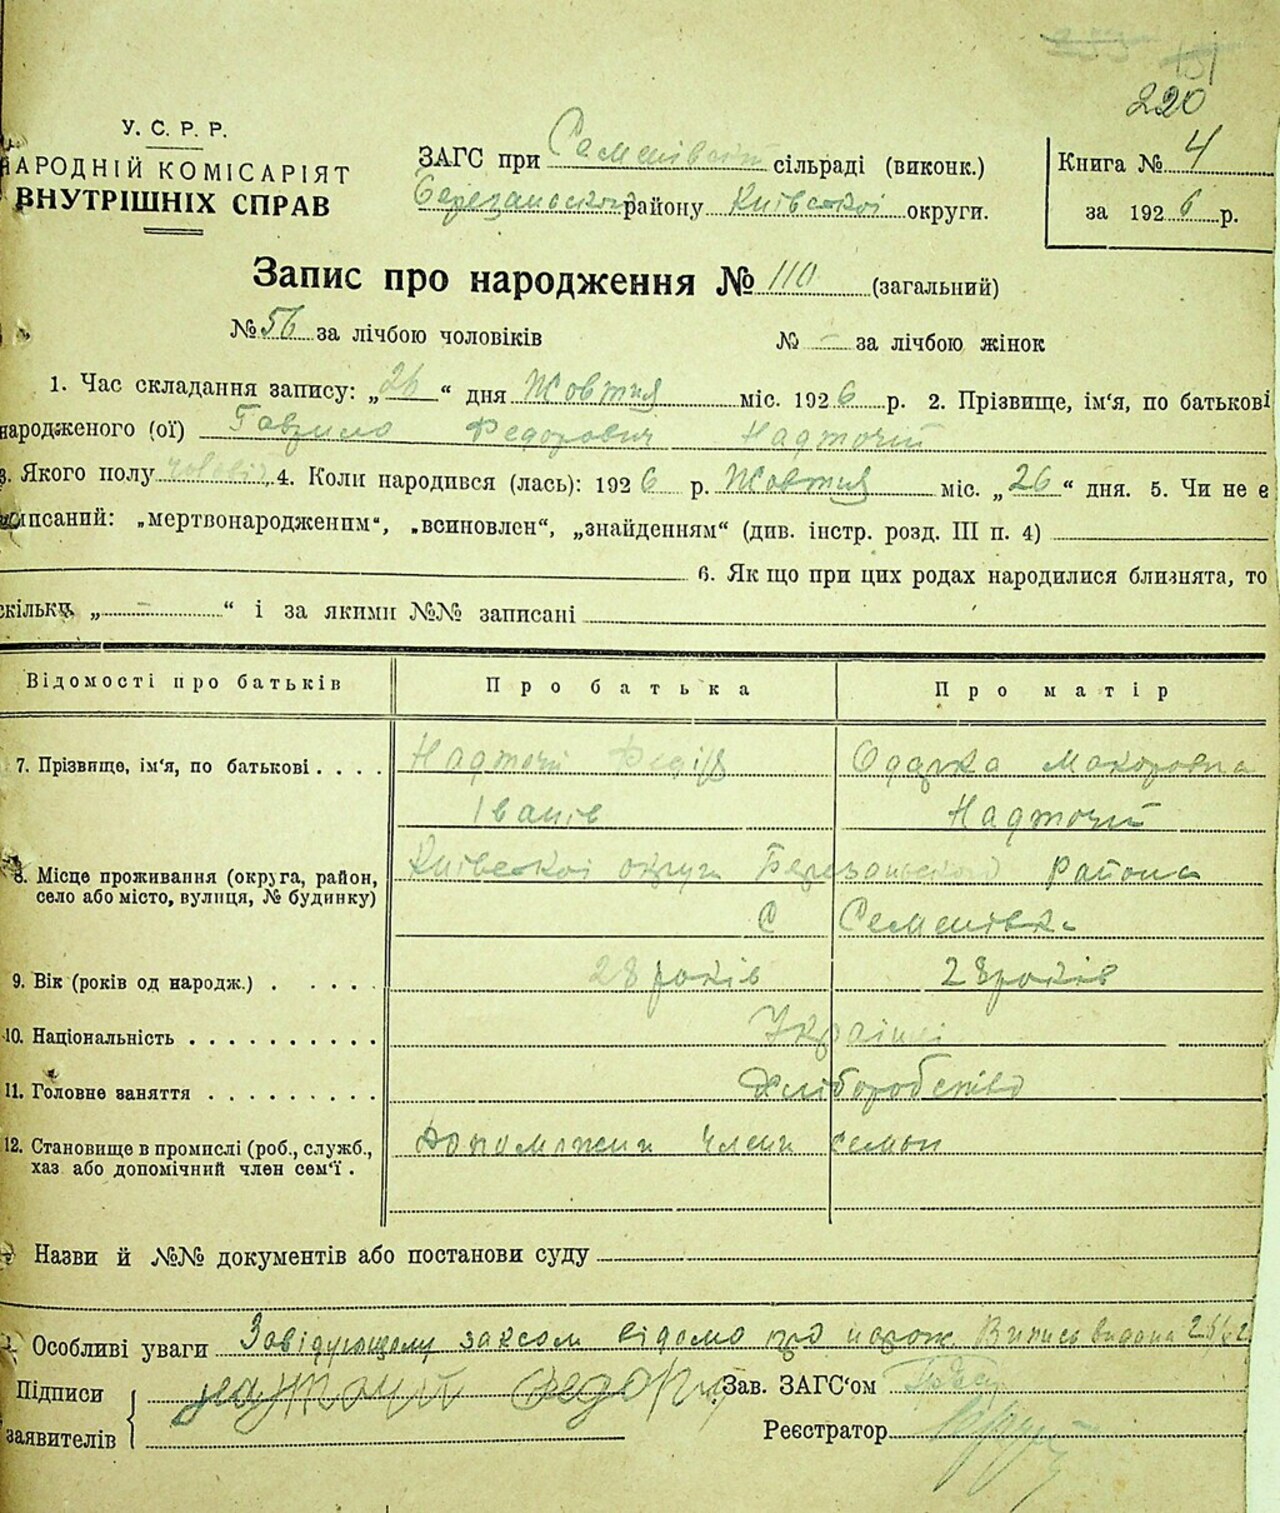 220
У. С. Р. Р.
НАРОДНІЙ КОМІСАРІЯТ
ВНУТРІШНІХ СПРАВ
ЗАГС при Семенівській сільраді (виконк.)
Березанського району Київської округи.
Книга № 4
за 1926 р.
Запис про народження № 110 (загальний)
№ 56 за лічбою чоловіків № - за лічбою жінок
1. Час складання запису: „26“ дня Жовтня міс. 1926 р. 2. Прізвище, ім'я, по батькові
народженого (ої) Гаврило Федорович Надточий
3. Якого полу чоловіч. 4. Коли народився (лась): 1926 р. Жовтня міс. „26“ дня. 5. Чи не є
записаний: „мертвонародженим“, „всиновлен“, „знайденням“ (див. інстр. розд. III п. 4)
6. Як що при цих родах народилися близнята, то
скільки „ - “ і за якими №№ записані
Відомості про батьків Про батька Про матір
7. Прізвище, ім'я, по батькові . . . . Надточий Федір Одарка Макаровна
Іванів Надточий
8. Місце проживання (округа, район, село або місто, вулиця, № будинку) Київської округи Березанського района
С Семенівка
9. Вік (років од народж.) . . . . . 28 років 28 років
10. Національність . . . . . . . . . . Українці
11. Головне заняття . . . . . . . . . Хліборобство
12. Становище в промислі (роб., служб., хаз або допомічний член сем'ї . Допоможни члени семьи
Назви й №№ документів або постанови суду
Особливі уваги Завідующому загсом відомо про нарож. Випись видана
Підписи
заявителів
Надточий Федор
Зав. ЗАГС'ом
Реєстратор